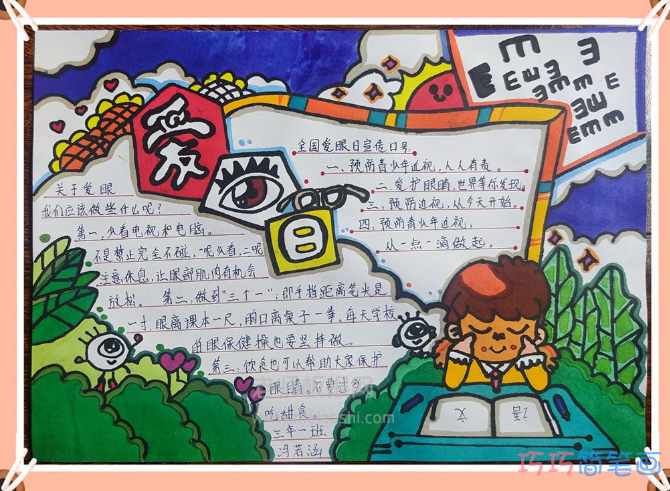 爱
日
E
E E E E
E E E
E E
E E E
E E E
全国爱眼日宣传口号
一、预防青少年近视,人人有责。
二、爱护眼睛,世界等你发现。
三、预防近视,从今天开始。
四、预防青少年近视,
从一点一滴做起。
关于爱眼
我们应该做些什么呢?
第一、少看电视和电脑。
不是禁止完全不碰,一呢少看,二呢
注意休息,让眼部肌肉有机会
放松。第二、做到“三个一”:即手指距离笔尖是
一寸,眼离课本一尺,胸口离桌子一拳,每天学校
的眼保健操也要坚持做。
第三、饮食也可以帮助大家保护
眼睛。不要过多
吃甜食。
三年一班
冯若涵
语 文
巧巧简笔画